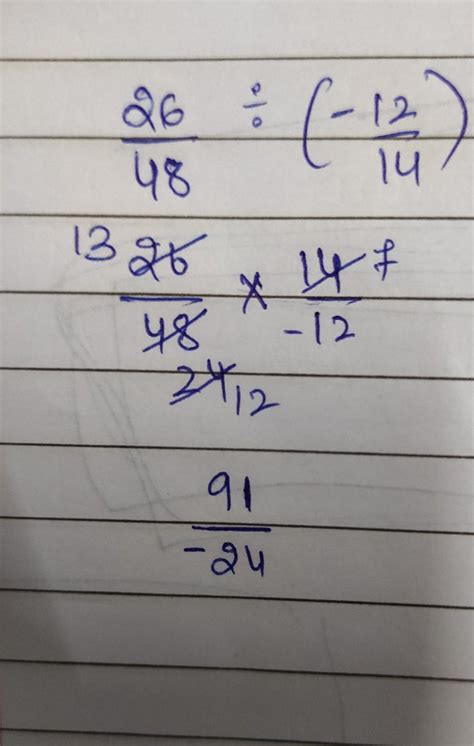 26/48 ÷ (-12/14)
13 26/48 × 14/-12 7
24 12
91/-24